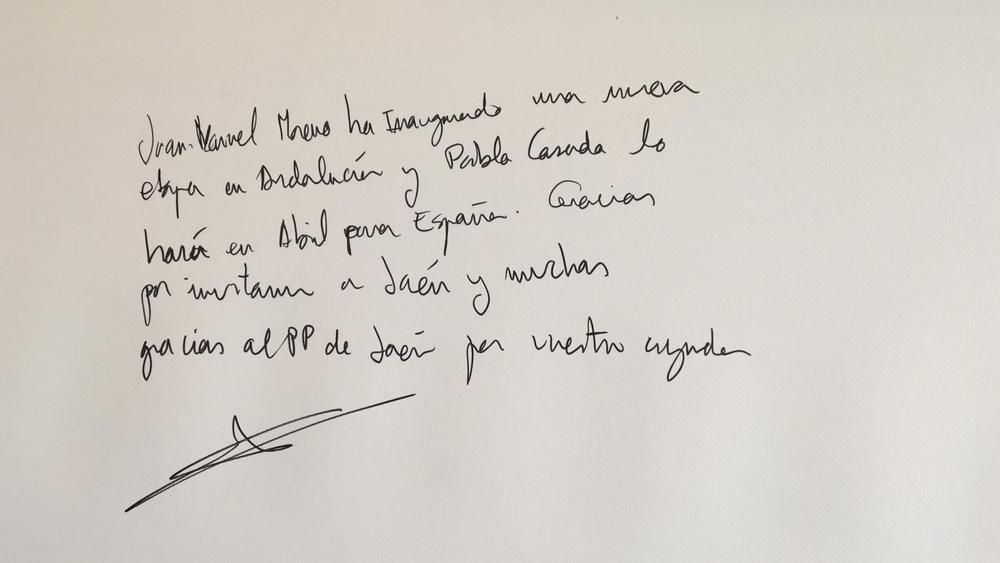 Juan Manuel Moreno ha Inaugurado una nueva
etapa en Andalucía y Pablo Casado lo
hará en Abril para España. Gracias
por invitarme a Jaén y muchas
gracias al PP de Jaén por vuestra ayuda